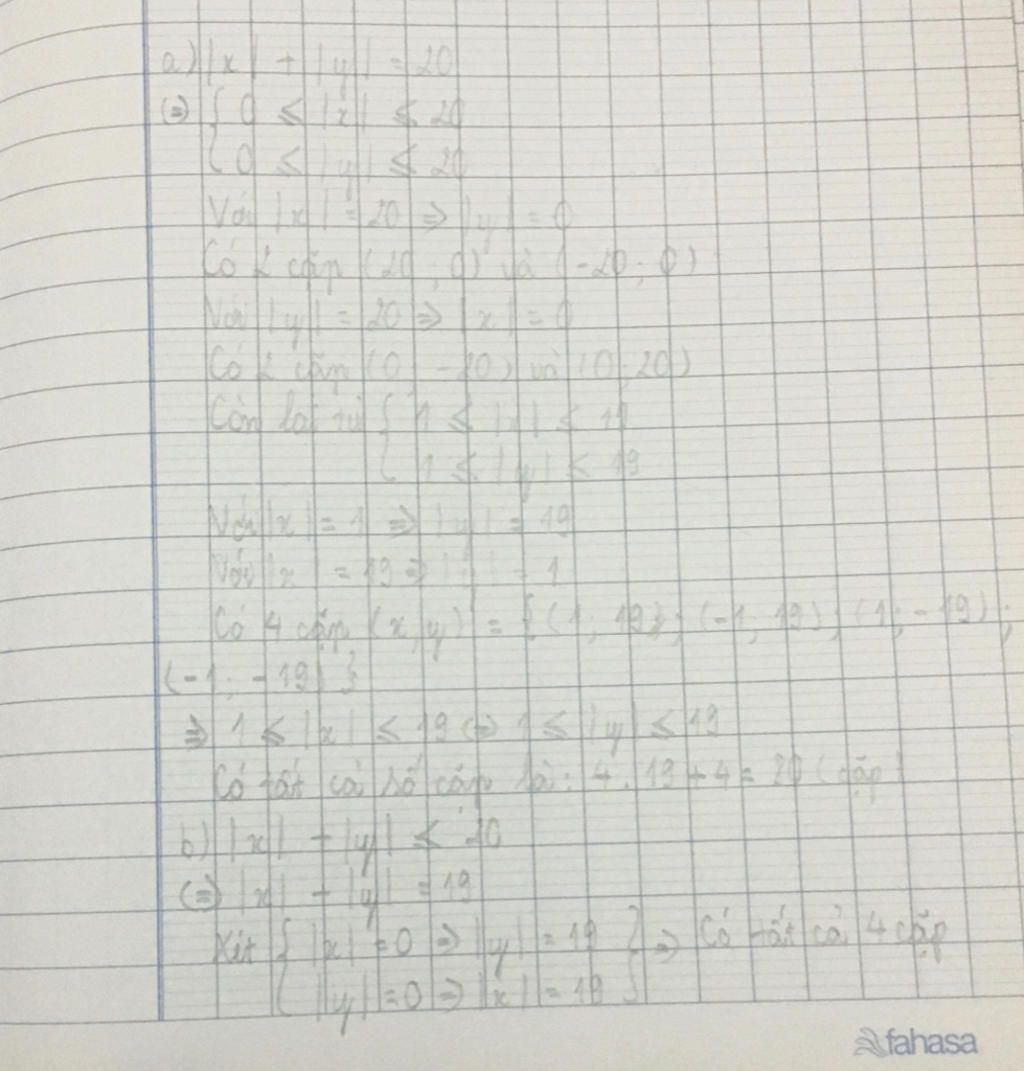 a) |x| + |y| = 20
(=) { 0 ≤ |x| ≤ 20
{ 0 ≤ |y| ≤ 20
Với |x| = 20 => |y| = 0
Có 2 cặp (20 ; 0) và (-20 ; 0)
Với |y| = 20 => |x| = 0
Có 2 cặp (0 ; -20) và (0 ; 20)
Còn lại từ { 1 ≤ |x| ≤ 19
{ 1 ≤ |y| ≤ 19
Với |x| = 1 => |y| = 19
Với |x| = 19 => |y| = 1
Có 4 cặp (x, y) = {(1 ; 19) ; (-1 ; 19) ; (1 ; -19) ;
(-1 ; -19) }
=> 1 ≤ |x| ≤ 19 (=) 1 ≤ |y| ≤ 19
Có tất cả số cặp là : 4 . 19 + 4 = 20 (cặp)
b) |x| + |y| ≤ 20
(=) |x| + |y| = 19
Xét { |x| = 0 => |y| = 19 } => Có tất cả 4 cặp
{ |y| = 0 => |x| = 19 }
fahasa